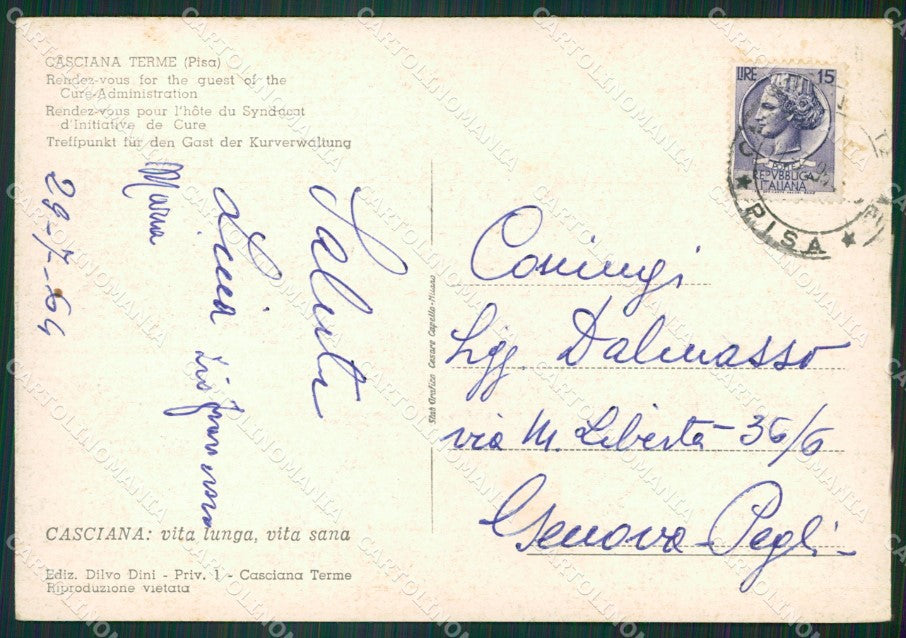 CASCIANA TERME (Pisa)
Rendez-vous for the guest of the
Cure-Administration
Rendez-vous pour l'hôte du Syndacat
d'Initiative de Cure
Treffpunkt für den Gast der Kurverwaltung
29-7-64
Maria
Licia
Saluti
CASCIANA: vita lunga, vita sana
Ediz. Dilvo Dini - Priv. 1 - Casciana Terme
Riproduzione vietata
Stab. Grafico Cesare Capello - Milano
LIRE 15
REPVBBLICA
ITALIANA
PISA
Coniugi
Sigg. Dalmasso
via M. Libertà 36/6
Genova-Pegli
CARTOLINOMANIA